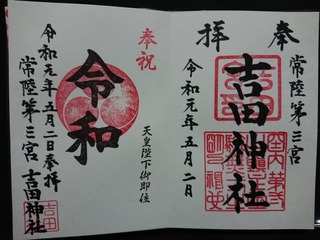 奉拝
常陸第三宮
吉田神社
令和元年五月二日
奉祝
天皇陛下御即位
令和
令和元年五月二日奉拝
常陸第三宮
吉田神社